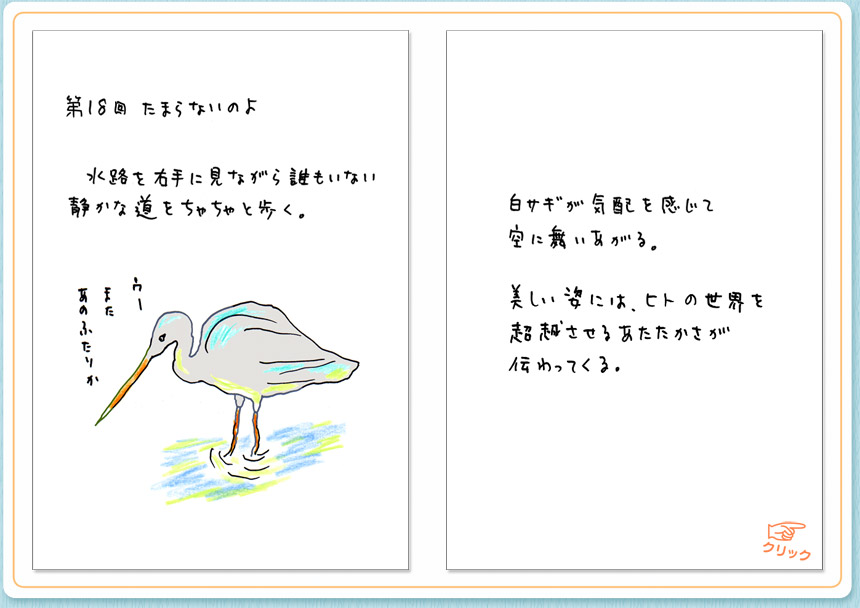 第18回 たまらないのよ
水路を右手に見ながら誰もいない
静かな道をちゃちゃと歩く。
ウー
また
あのふたりか
白サギが気配を感じて
空に舞いあがる。
美しい姿には、ヒトの世界を
超越させるあたたかさが
伝わってくる。
クリック